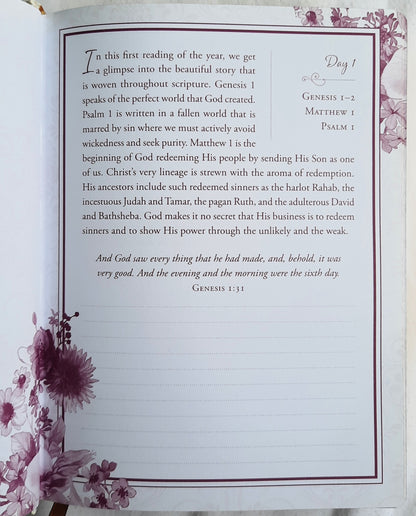 In this first reading of the year, we get
a glimpse into the beautiful story that
is woven throughout scripture. Genesis 1
speaks of the perfect world that God created.
Psalm 1 is written in a fallen world that is
marred by sin where we must actively avoid
wickedness and seek purity. Matthew 1 is the
beginning of God redeeming His people by sending His Son as one
of us. Christ's very lineage is strewn with the aroma of redemption.
His ancestors include such redeemed sinners as the harlot Rahab, the
incestuous Judah and Tamar, the pagan Ruth, and the adulterous David
and Bathsheba. God makes it no secret that His business is to redeem
sinners and to show His power through the unlikely and the weak.
Day 1
Genesis 1–2
Matthew 1
Psalm 1
And God saw every thing that he had made, and, behold, it was
very good. And the evening and the morning were the sixth day.
Genesis 1:31